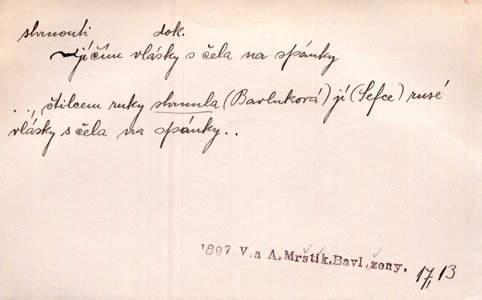 shrnouti dok.
~ jí čím vlásky s čela na spánky
..., štilcem ruky shrnula (Bavlnková) jí (Sefce) rusé
vlásky s čela na spánky..
1897 V. a A. Mrštík, Bavl. ženy,
17, 13